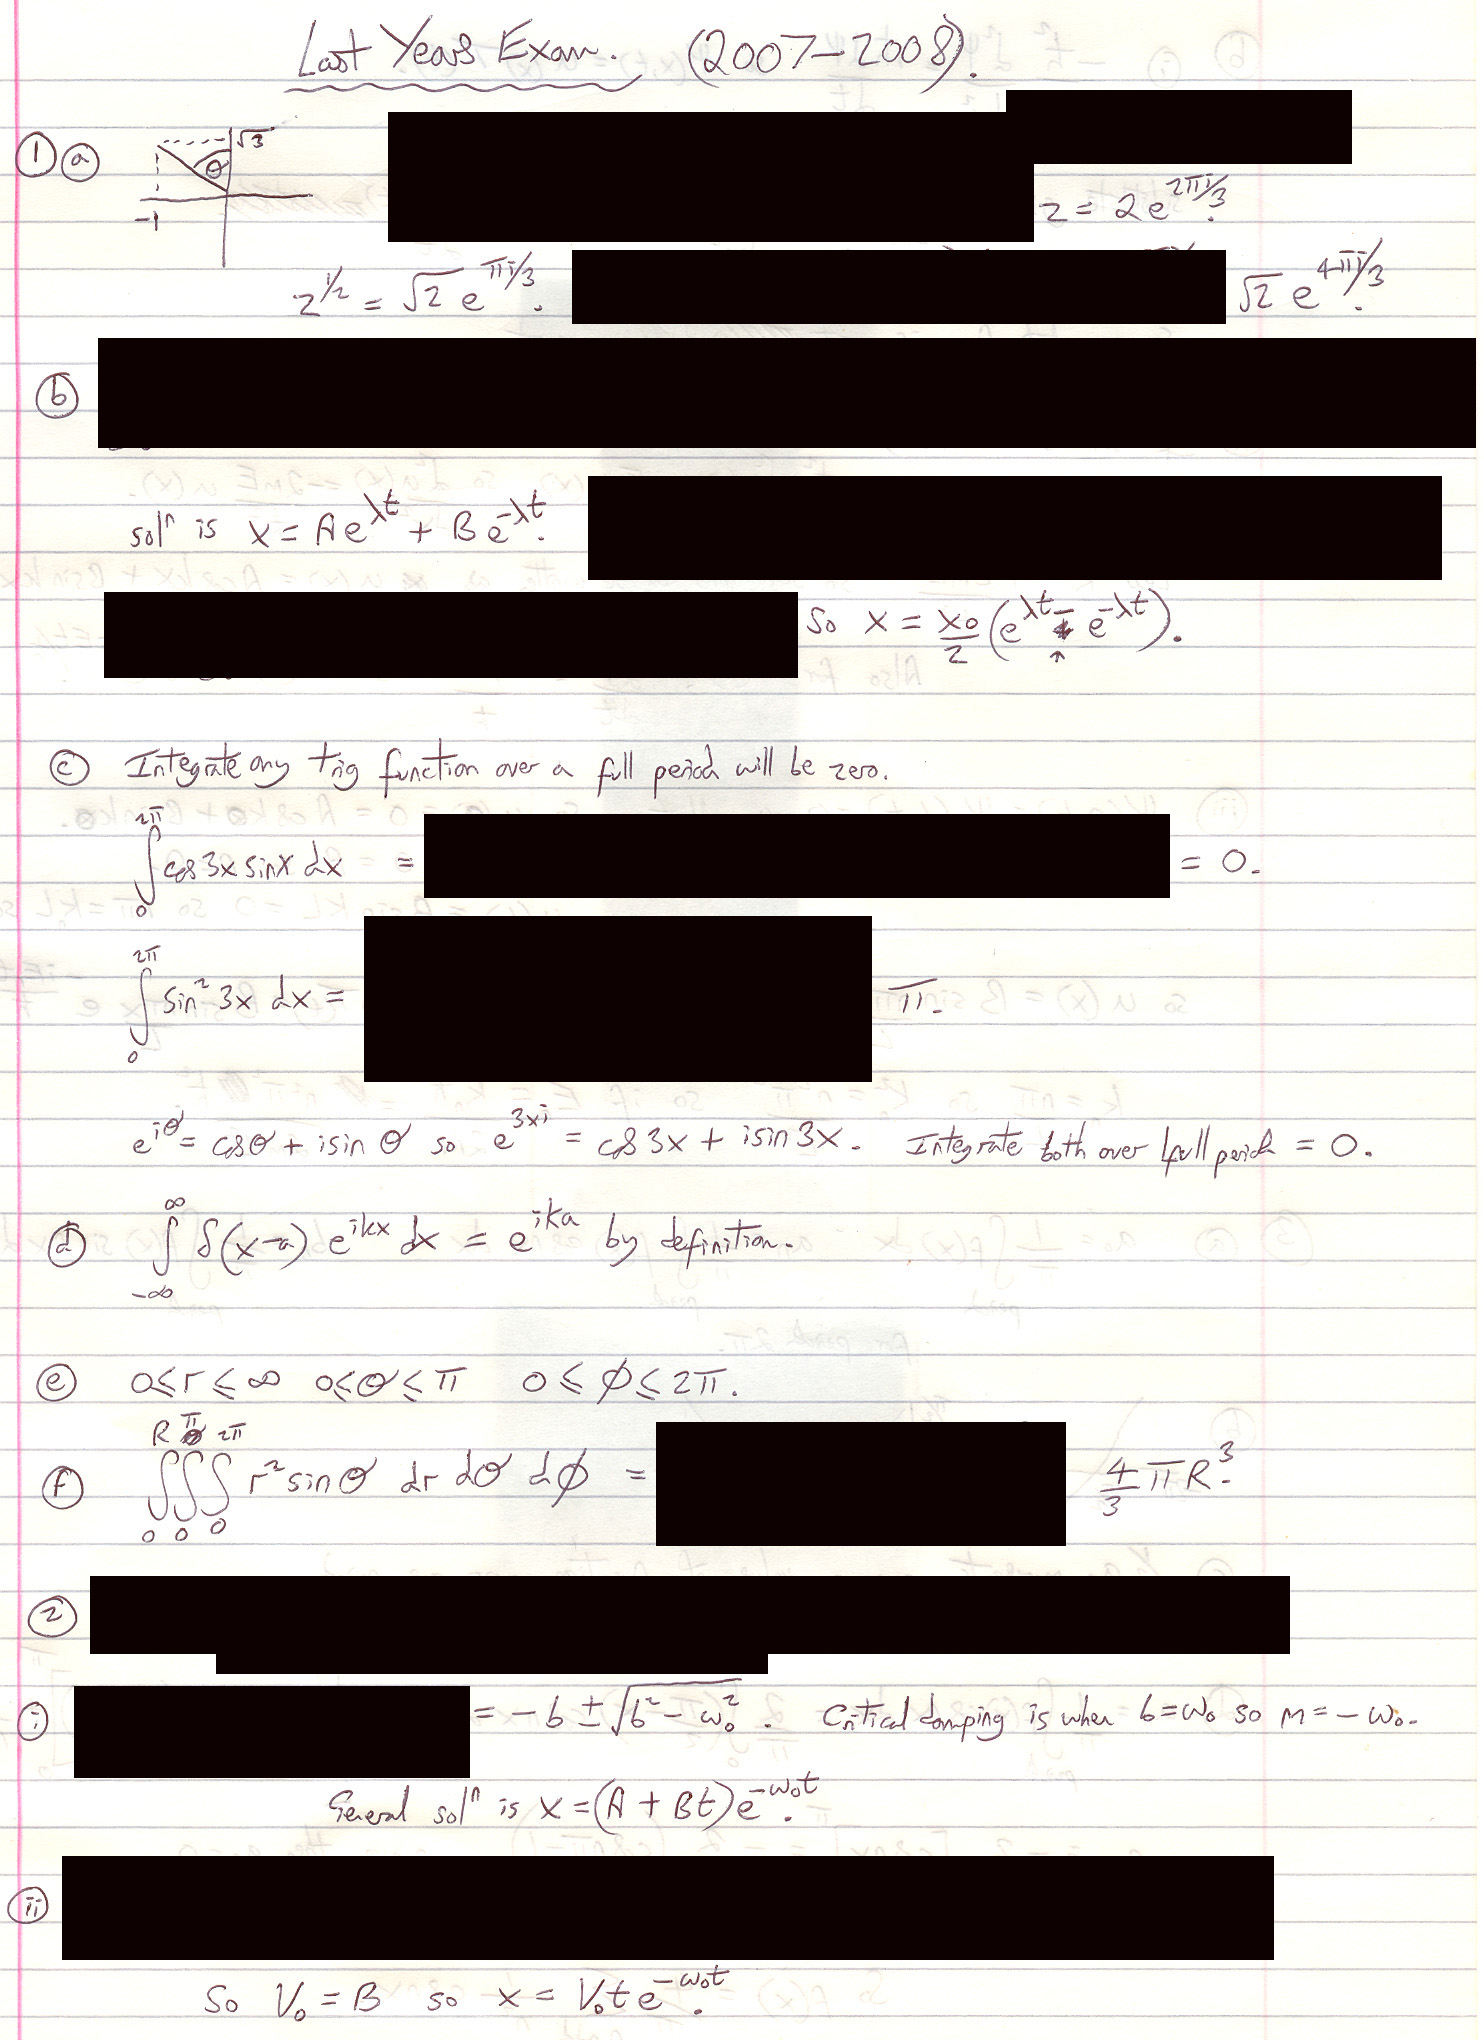 Last Years Exam. (2007–2008).
① ⓐ √3 θ -1
z = 2e^{2πi/3}.
z^{1/2} = √2 e^{πi/3}. √2 e^{4πi/3}.
ⓑ
solⁿ is x = Ae^{λt} + Be^{-λt}.
So x = x₀/2 (e^{λt} - e^{-λt}).
↑
ⓒ Integrate any trig function over a full period will be zero.
∫₀^{2π} cos 3x sin x dx = = 0.
∫₀^{2π} sin² 3x dx = π.
e^{iθ} = cos θ + i sin θ so e^{3xi} = cos 3x + i sin 3x. Integrate both over full period = 0.
ⓓ ∫_{-∞}^{∞} δ(x-a) e^{ikx} dx = e^{ika} by definition.
ⓔ 0 ≤ r ≤ ∞ 0 ≤ θ ≤ π 0 ≤ ϕ ≤ 2π.
ⓕ ∫₀^R ∫₀^π ∫₀^{2π} r² sin θ dr dθ dϕ = 4/3 πR³.
②
ⓘ = -b ± √(b² - ω₀²). Critical damping is when b = ω₀ so m = -ω₀.
General solⁿ is x = (A + Bt)e^{-ω₀t}.
ⓘⓘ
So V₀ = B so x = V₀te^{-ω₀t}.